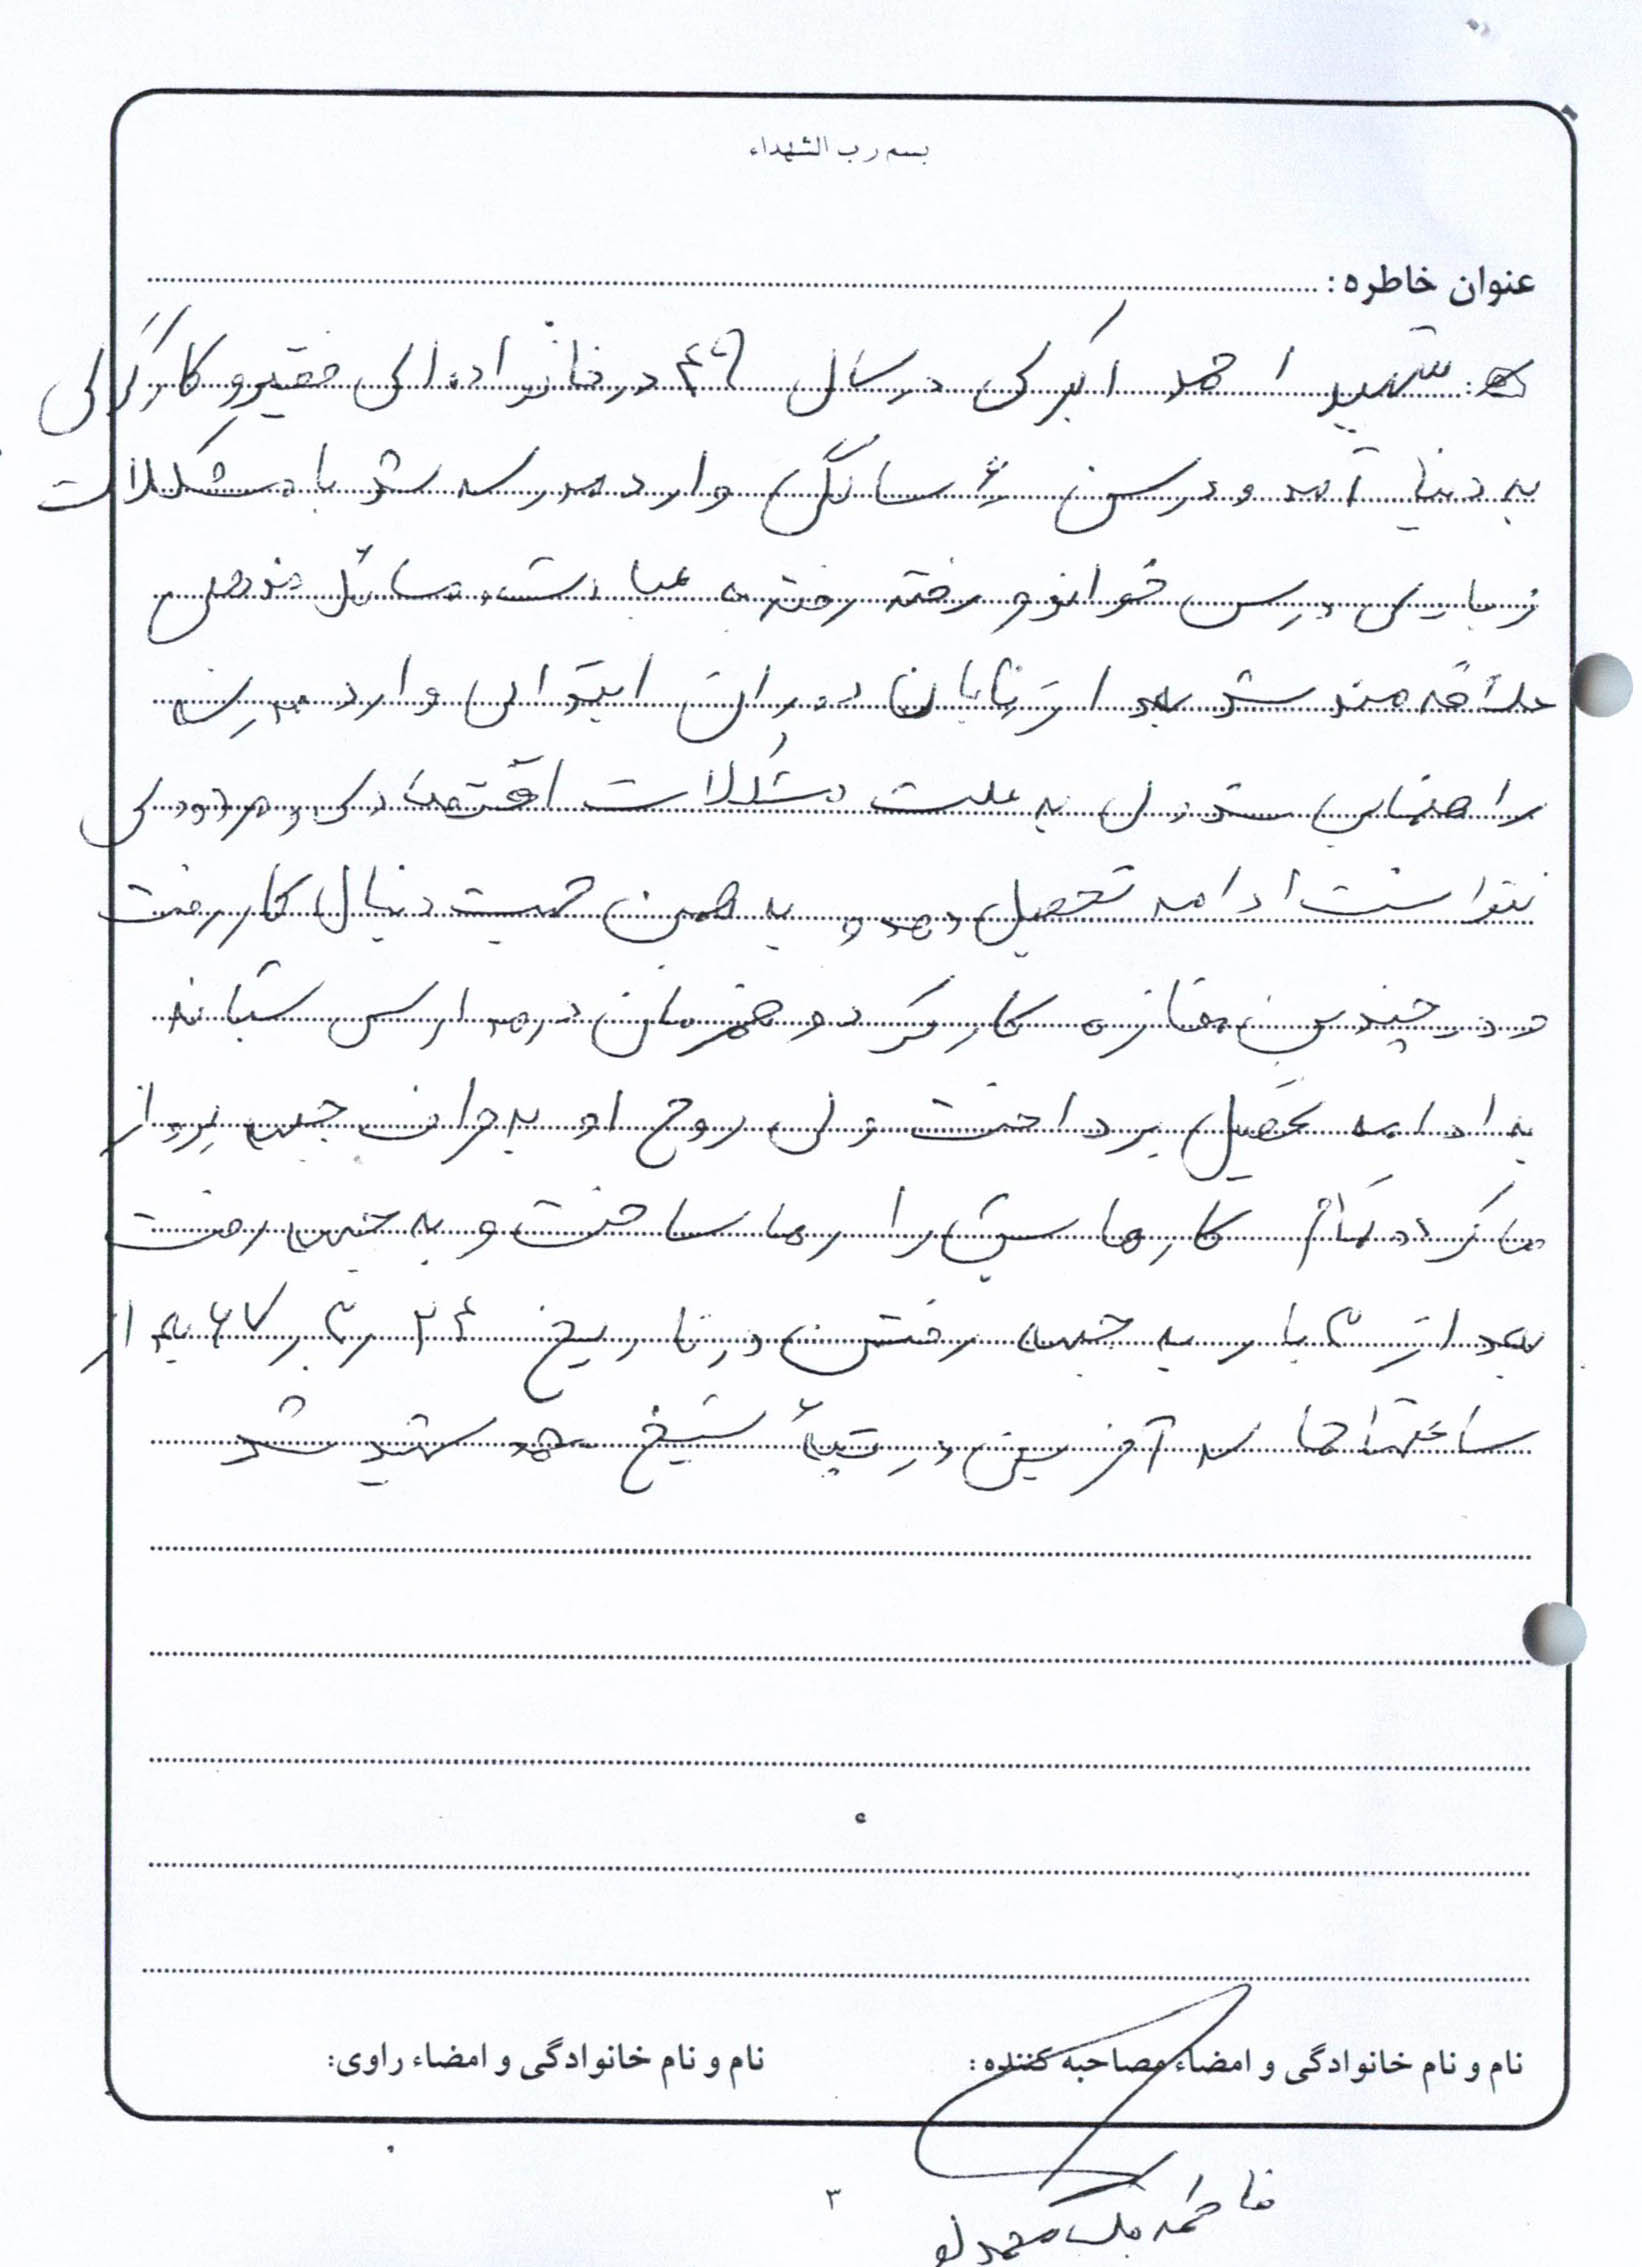 بسم رب الشهداء
عنوان خاطره:
شهید احمد اکبری در سال ۴۶ در خانواده ای فقیر و کارگری
به دنیا آمد و در سن ۶ سالگی وارد مدرسه شد با مشکلات
زیادی درس خواند و رفته رفته به عبادت و مسائل مذهبی
علاقه مند شد بعد از پایان دوران ابتدائی وارد مدرسه
راهنمایی شد ولی به علت مشکلات اقتصادی و مردودی
نتوانست ادامه تحصیل دهد و به همین جهت دنبال کار رفت
و در چندین مغازه کار کرد و همزمان در مدارس شبانه
به ادامه تحصیل پرداخت ولی روح او به طرف جبهه پرواز
می کرد تمام کارهایش را رها ساخت و به جبهه رفت
بعد از ۳ بار به جبهه رفتن در تاریخ ۲۴ ر ۳ ر ۶۷ بعد از
ساعتها حماسه آفرینی در تپه شیخ محمد شهید شد
نام و نام خانوادگی و امضاء مصاحبه کننده:
نام و نام خانوادگی و امضاء راوی:
فاطمه بیک محمدلو
۳